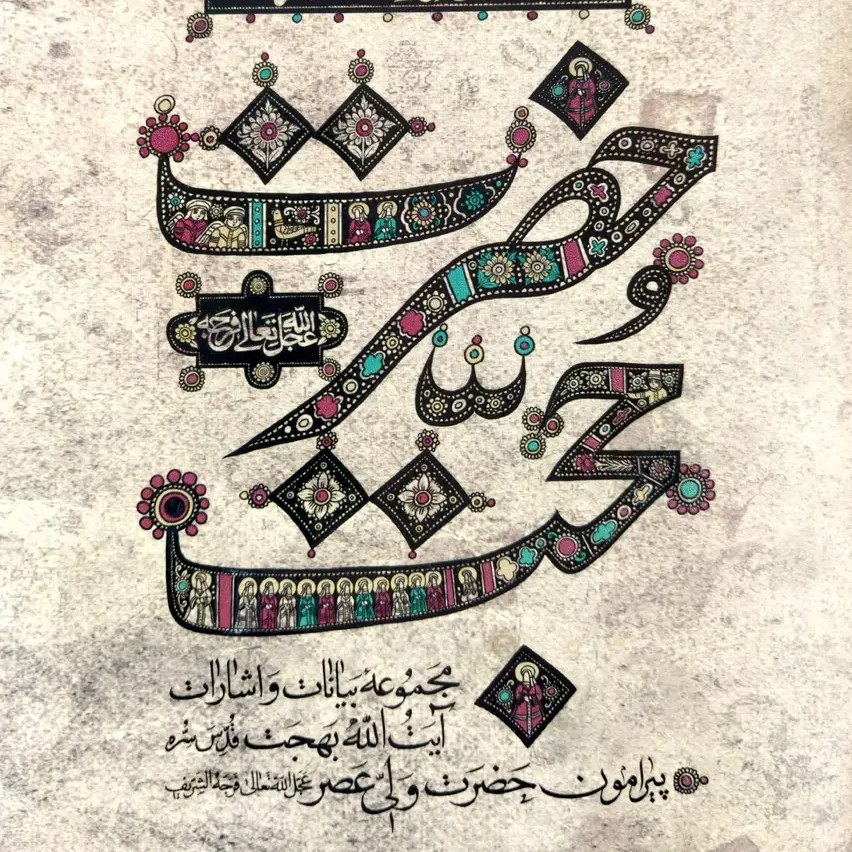 حضرت
حجت
عجل الله تعالی فرجه
مجموعهٔ بیانات و اشارات
آیت الله بهجت قدس سره
پیرامون حضرت ولی عصر عجل الله تعالی فرجه الشریف